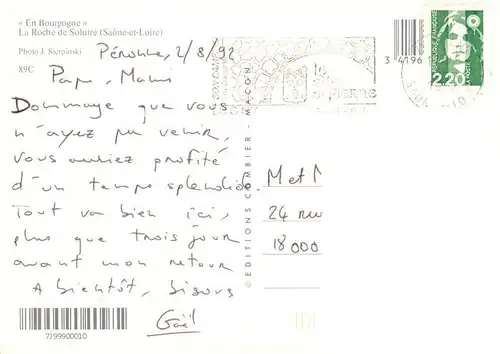 « En Bourgogne »
La Roche de Solutré (Saône-et-Loire)
Photo J. Sierpinski
89C
Péronne, 2/8/92
Papu, Mamu
Dommage que vous
n'ayez pu venir,
vous auriez profité
d'un temps splendide.
Tout va bien ici,
plus que trois jours
avant mon retour
A bientôt, bisous
Gaël
7199900010
© EDITIONS CAMBIER - MACON
3 4196
REPUBLIQUE FRANÇAISE
2,20
LA POSTE
M et M
24 rue
18000